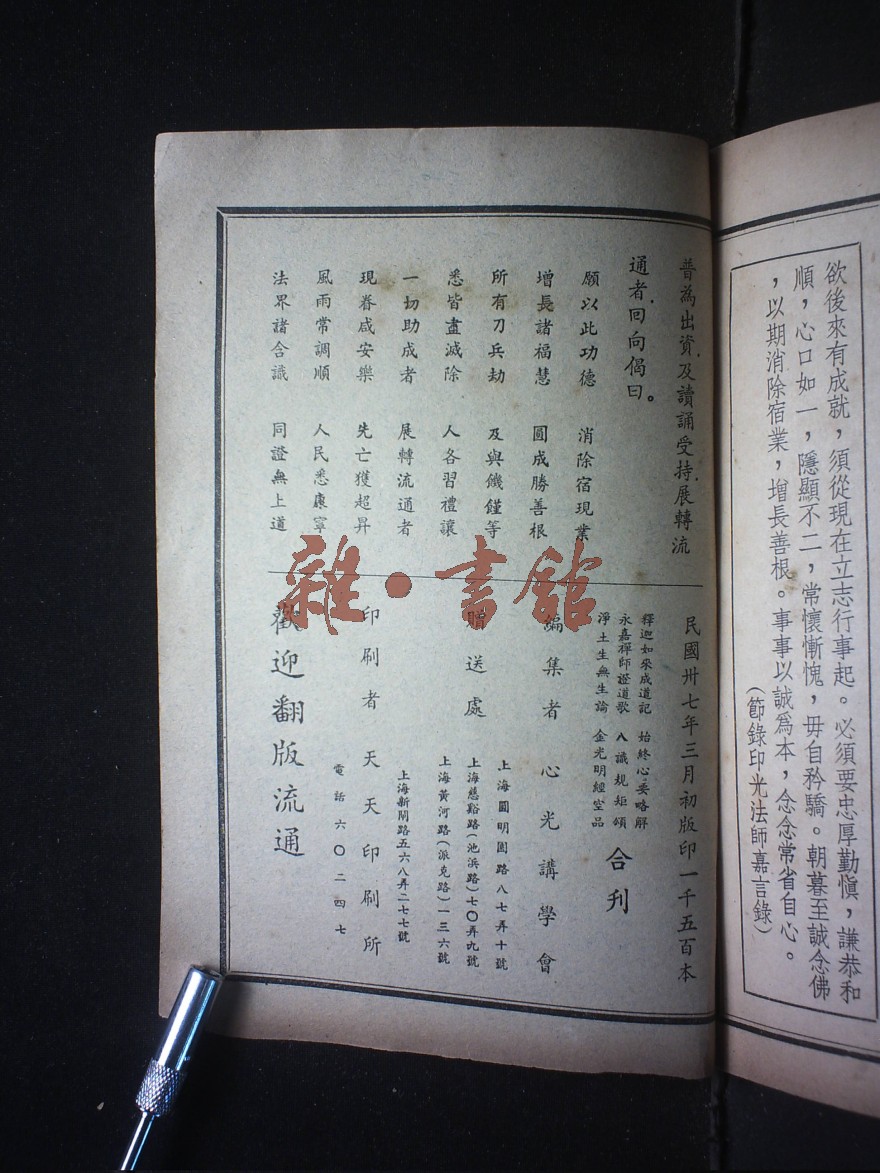 欲後來有成就，須從現在立志行事起。必須要忠厚勤愼，謙恭和
順，心口如一，隱顯不二，常懷慚愧，毋自矜驕。朝暮至誠念佛
，以期消除宿業，增長善根。事事以誠爲本，念念常省自心。
（節錄印光法師嘉言錄）
普為出資，及讀誦受持，展轉流
通者，回向偈曰。
願以此功德　消除宿現業
增長諸福慧　圓成勝善根
所有刀兵劫　及與饑饉等
悉皆盡滅除　人各習禮讓
一切助成者　展轉流通者
現眷咸安樂　先亡獲超昇
風雨常調順　人民悉康寧
法界諸含識　同證無上道
民國卅七年三月初版印一千五百本
釋迦如來成道記　始終心要略解
永嘉禪師證道歌　八識規矩頌
淨土生無生論　金光明經空品
合刊
編集者　心光講學會
贈送處
上海圓明園路八七弄十號
上海慈谿路（池浜路）七〇弄九號
上海黃河路（派克路）一三六號
印刷者　天天印刷所
上海新閘路五六八弄二七七號
電話六〇二四七
歡迎翻版流通
雜·書館